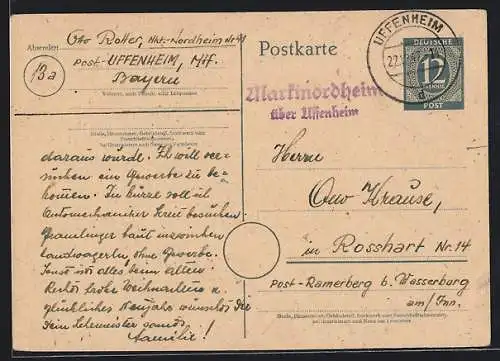 Absender:
Otto Roller, Mkt. Nordheim Nr 41
Post-UFFENHEIM, Mff.
13a
Bayern
Wohnort, auch Zustell- oder Leitpostamt
Straße, Hausnummer, Gebäudeteil, Stockwerk oder Postschließfachnummer,
bei Untermietern auch Name des Vermieters
daraus wurde. Ich will ver-
suchen ein Gewerbe zu be-
kommen. In kürze soll ich
Automechaniker besuchen
baut inzwischen
Landwagerln, ohne Gewerbe.
Sonst ist alles beim alten!
Recht frohe Weihnachten u.
glückliches Neujahr wünscht Dir
Dein Lehrmeister samt
Familie!
Postkarte
UFFENHEIM
DEUTSCHE
12
PFENNIG
POST
Marktnordheim
über Uffenheim
Herrn
Otto Krause,
in Rosshart Nr. 14
Post-Ramerberg b/ Wasserburg
am/Inn.
Straße, Hausnummer, Gebäudeteil, Stockwerk oder Postschließfachnummer,
bei Untermietern auch Name des Vermieters